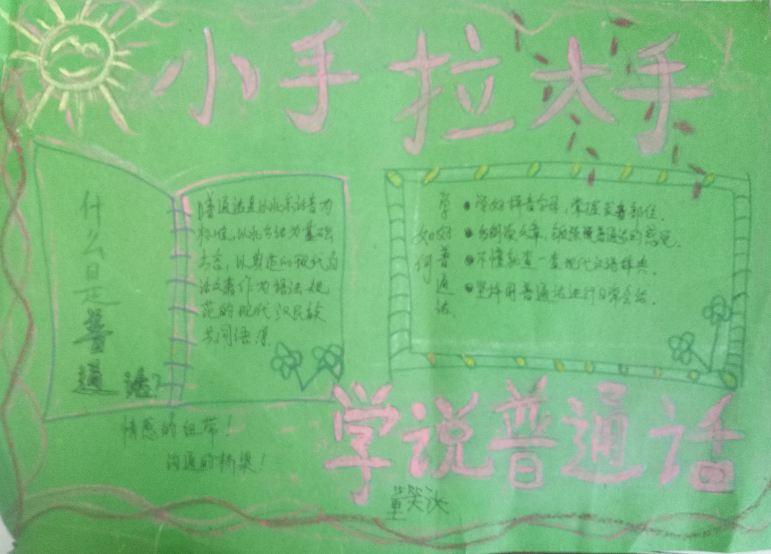 小手拉大手
什么是普通话?
普通话是以北京语音为
标准,以北方话为基础
方言,以典范的现代白
话文著作为语法规
范的现代汉民族
共同语。
如何
学好普通话
学好拼音字母,掌握发音部位。
不懂就查一查现代汉语辞典。
坚持用普通话进行日常会话。
情感的纽带!
沟通的桥梁!
学说普通话